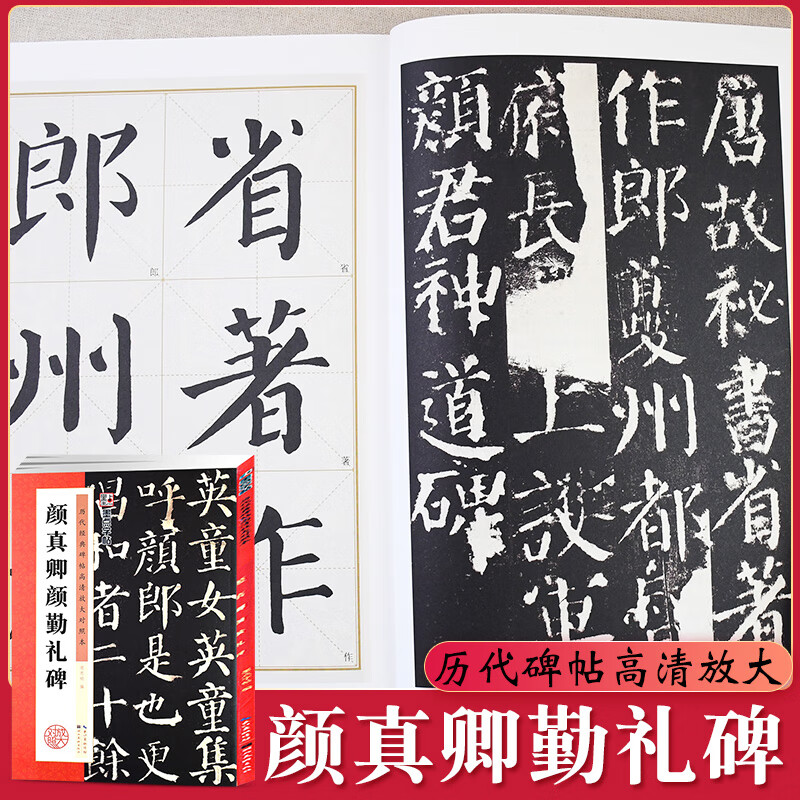 唐故秘書省著
作郎夔州都
府長上護軍
顏君神道碑
省著作
郎州
省
郎
著
作
英童女英童集
呼顏郎是也更
唱和者二十餘
墨点字帖
历代经典碑帖高清放大对照本
颜真卿颜勤礼碑
历代碑帖高清放大
颜真卿勤礼碑